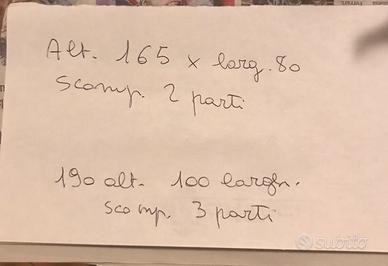 Alt. 165 x larg. 80
Scomp. 2 parti
190 alt. 100 largh.
Scomp. 3 parti
subito